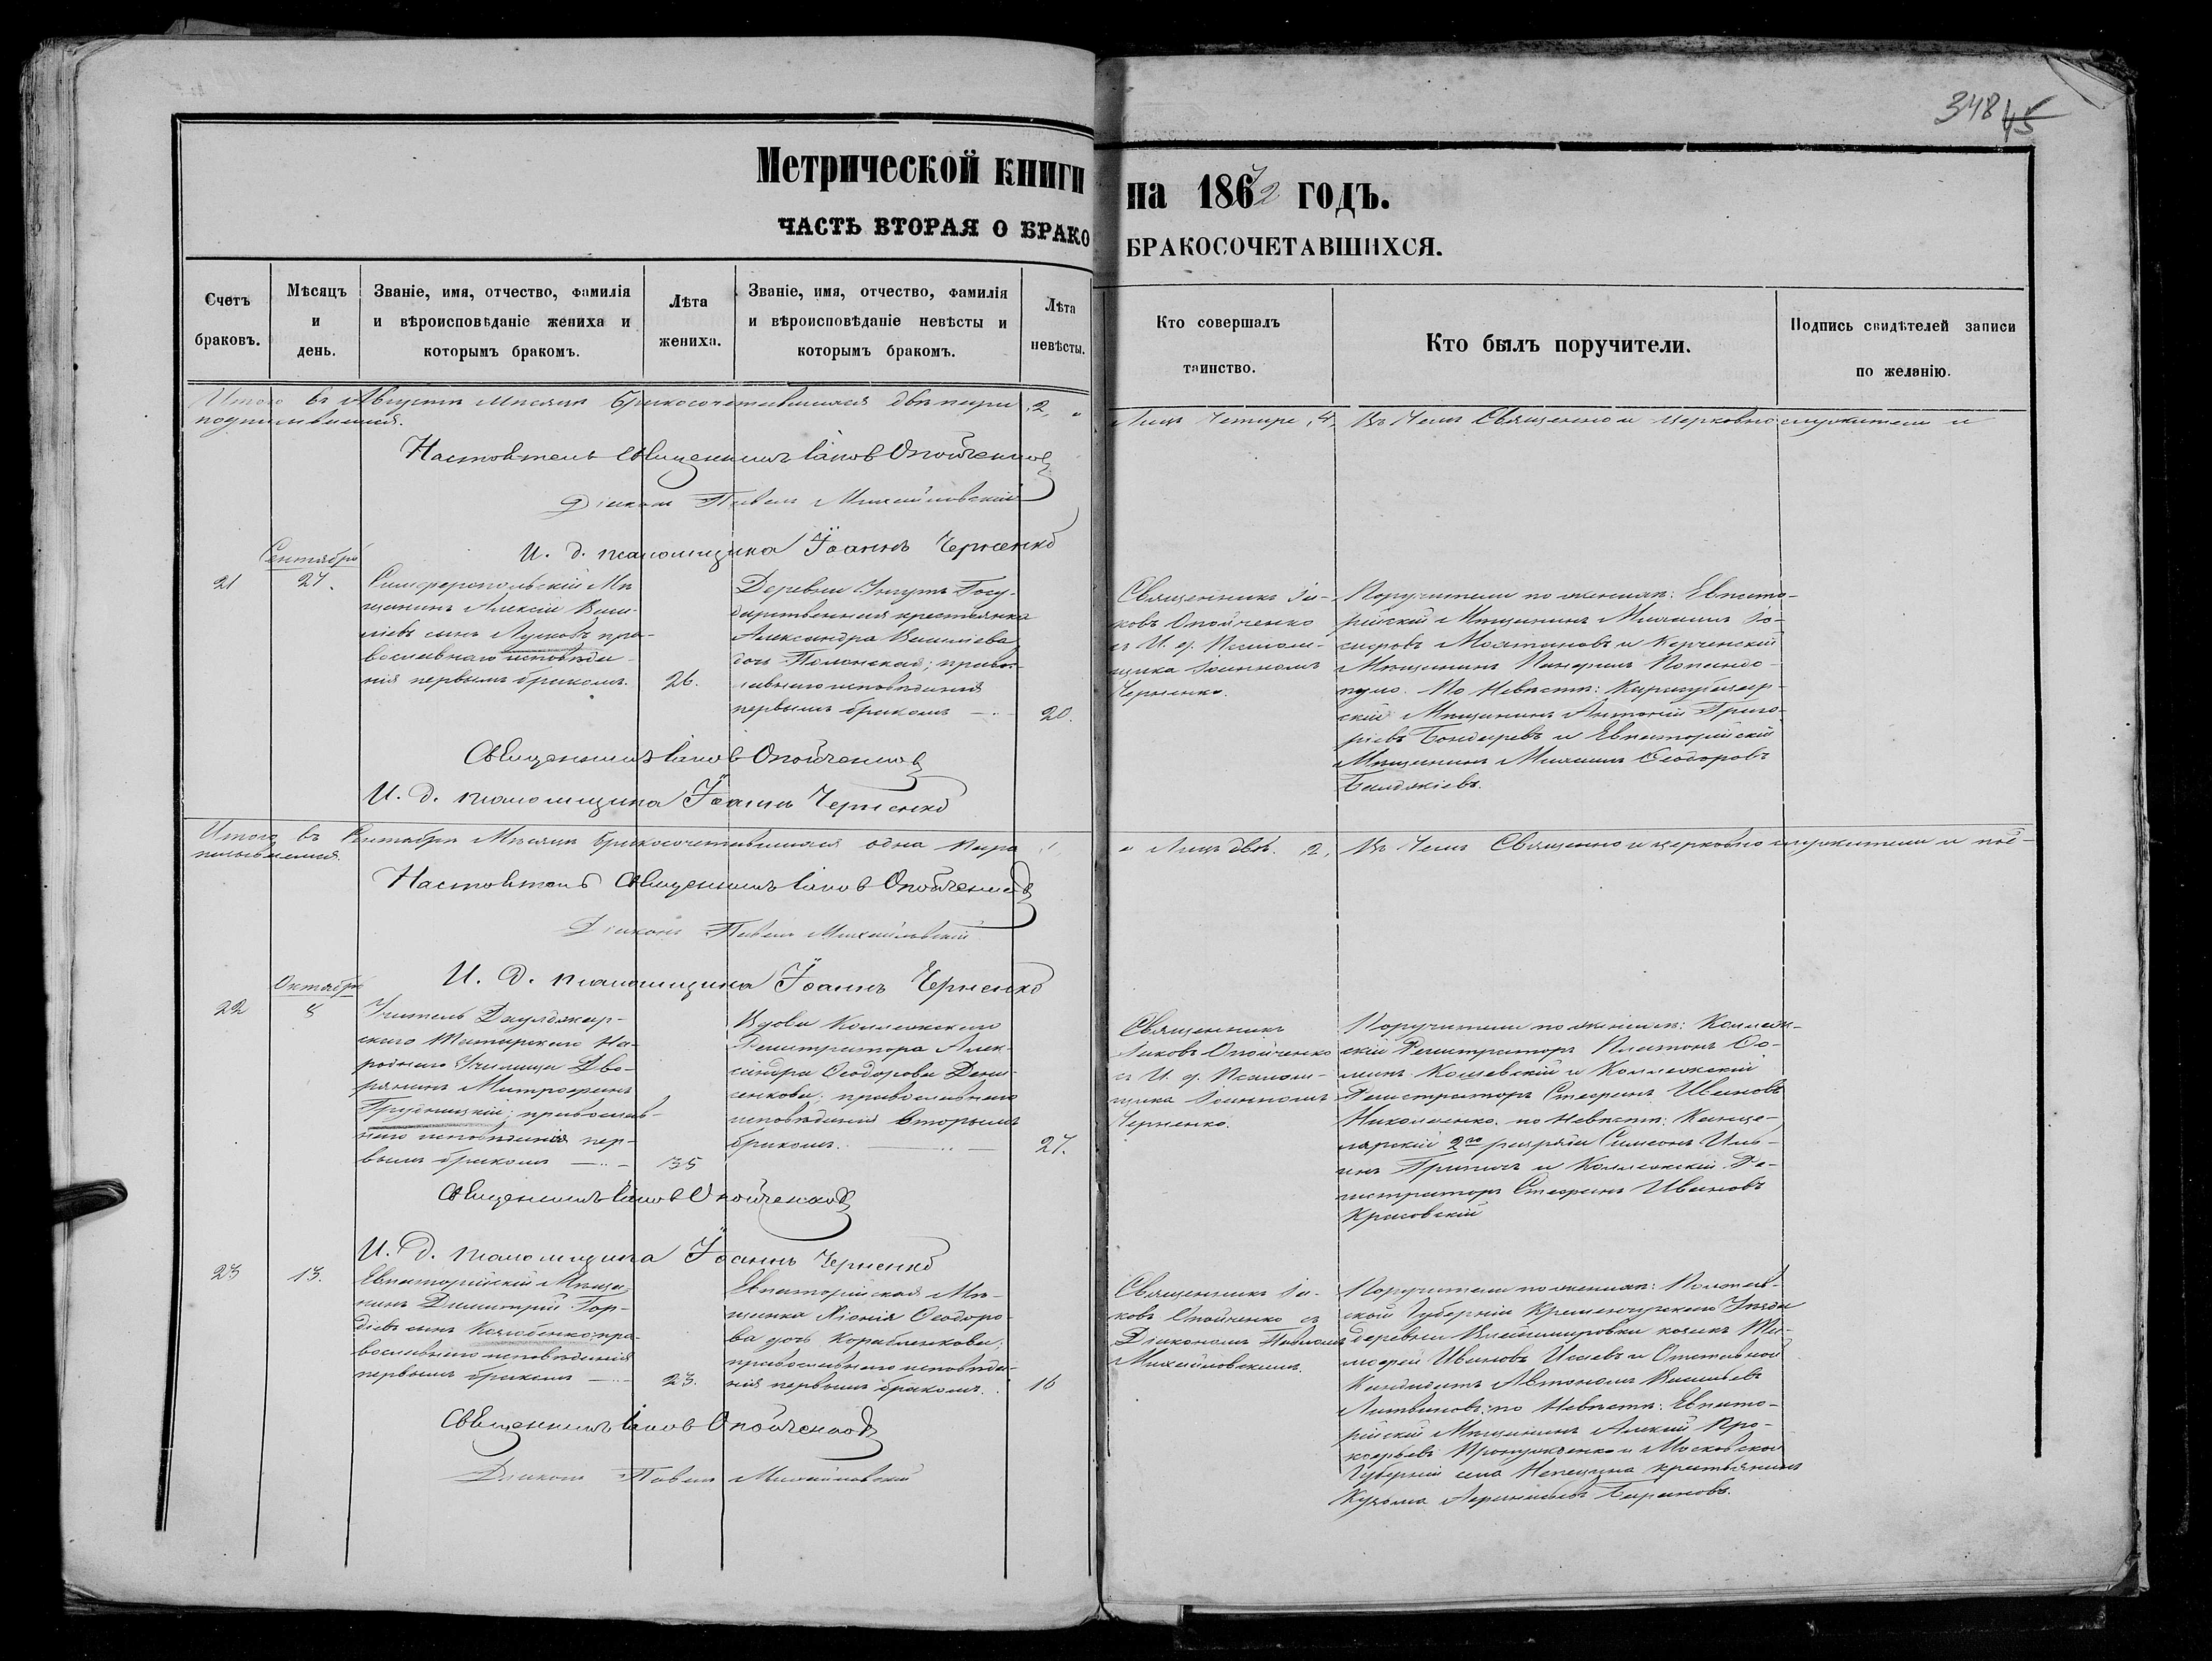 348 45
Метрической книги на 1872 годъ.
ЧАСТЬ ВТОРАЯ О БРАКО БРАКОСОЧЕТАВШИХСЯ.
Счетъ браковъ.
Мѣсяцъ и день.
Званіе, имя, отчество, фамилія
и вѣроисповѣданіе жениха и
которымъ бракомъ.
Лѣта жениха.
Званіе, имя, отчество, фамилія
и вѣроисповѣданіе невѣсты и
которымъ бракомъ.
Лѣта невѣсты.
Кто совершалъ
таинство.
Кто былъ поручители.
Подпись свидѣтелей записи
по желанію.
Итого въ Августѣ Мѣсяцѣ бракосочетавшихся двѣ пары 2, Лицъ Четыре, 4, Въ Чемъ Священно и церковно служители и
подписываемся.
Настоятель Священникъ Іаковъ Опойченко
Діаконъ Павелъ Михайловскій
И. д. псаломщика Іоаннъ Черненко
Сентябрь
21
27.
Симферопольскій Мѣ-
щанинъ Алексій Васи-
ліевъ сынъ Лушовъ, пра-
вославнаго исповѣда-
нія первымъ бракомъ.
26.
Деревни Госу-
дарственная крестьянка
Александра Василіева
дочь Полонская; право-
славнаго исповѣданія
первымъ бракомъ
20.
Священникъ Іа-
ковъ Опойченко
съ И. д. Псалом-
щика Іоанномъ
Черненко.
Поручители по женихѣ: Евпато-
рійскій Мѣщанинъ Михаилъ Іо-
сифовъ и Керченскій
Мѣщанинъ
По Невѣстѣ: Карасубазар-
скій Мѣщанинъ Антоній Григо-
ріевъ Бондаревъ и Евпаторійскій
Мѣщанинъ Михаилъ Ѳеодоровъ
Священникъ Іаковъ Опойченко
И. д. псаломщика Іоаннъ Черненко
Итого въ Сентябрѣ Мѣсяцѣ бракосочетавшихся одна пара 1, Лицъ двѣ. 2, Въ Чемъ Священно и церковно служители и под-
писываемся
Настоятель Священникъ Іаковъ Опойченко
Діаконъ Павелъ Михайловскій
И. д. псаломщика Іоаннъ Черненко
Октябрь
22
8
Учитель
скаго Татарскаго На-
роднаго Училища Дво-
рянинъ Митрофанъ
Грудницкій; православ-
наго исповѣданія пер-
вымъ бракомъ
35
Вдова Коллежскаго
Регистратора Алек-
сандра Ѳеодорова Дени-
сенкова; православнаго
исповѣданія Вторымъ
бракомъ.
27.
Священникъ
Іаковъ Опойченко
съ И. д. Псалом-
щика Іоанномъ
Черненко.
Поручители по женихѣ: Коллеж-
скій Регистраторъ Платонъ Ѳо-
минъ Кошевскій и Коллежскій
Регистраторъ Стефанъ Ивановъ
Николаенко. по Невѣстѣ: Канце-
лярскій 2го разряда Симеонъ Иль-
инъ и Коллежскій Ре-
гистраторъ Стефанъ Ивановъ
Красовскій
Священникъ Іаковъ Опойченко
И. д. псаломщика Іоаннъ Черненко
23
13.
Евпаторійскій Мѣща-
нинъ Димитрій Гор-
діевъ сынъ Коляубенко, пра-
вославнаго исповѣданія
первымъ бракомъ
23.
Евпаторійская Мѣ-
щанка Хіонія Ѳеодоро-
ва дочь Корабленкова;
православнаго исповѣда-
нія первымъ бракомъ.
16
Священникъ Іа-
ковъ Опойченко съ
Діакономъ Павломъ
Михайловскимъ.
Поручители по женихѣ: Полтав-
ской Губерніи Кременчугскаго Уѣзда
деревни Владимировки козакъ Ти-
мофей Ивановъ Исаевъ и Отставной
Кандидатъ Автономъ Васильевъ
Литвиновъ; по Невѣстѣ: Евпато-
рійскій Мѣщанинъ Алексій Про-
кофьевъ и Московской
Губерніи села Непецина крестьянинъ
Кузьма Барановъ.
Священникъ Іаковъ Опойченко
Діаконъ Павелъ Михайловскій